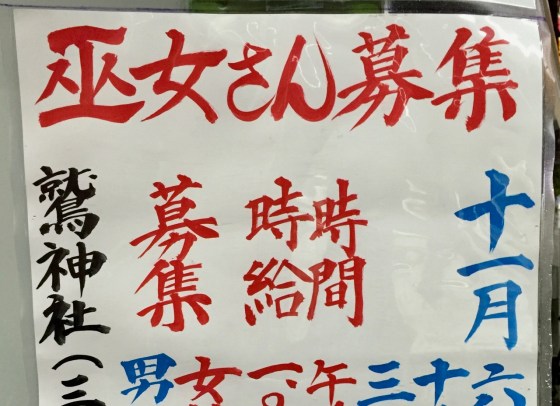 巫女さん募集
十一月
六
十
三
時間
午
時給
一。
募集
女
男
鷲神社(三